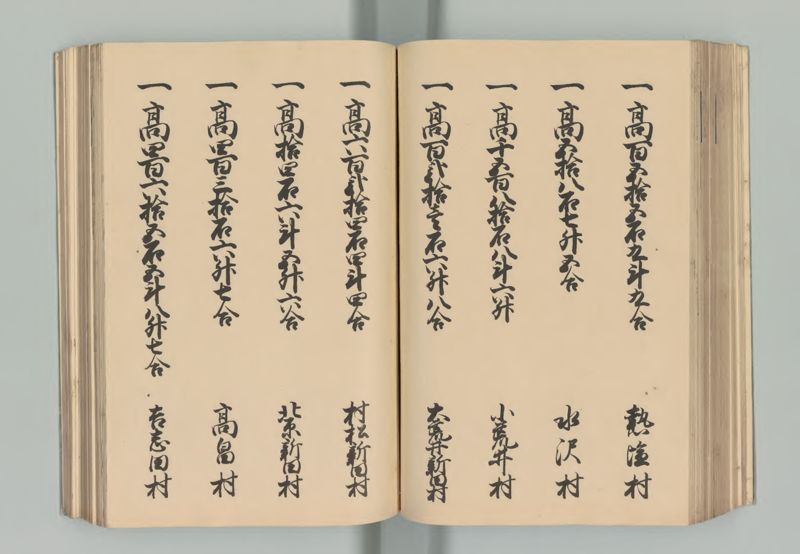 一高百五拾五石九斗九合 熱塩村
一高五拾八石七升五合 水沢村
一高千五百八拾石八斗六升 小荒井村
一高百弐拾壱石六升八合 大荒井新田村
一高六百弐拾四石四斗四合 村松新田村
一高拾四石六斗五升六合 北原新田村
一高四百三拾石六升七合 高畠村
一高四百六拾五石五斗八升七合 吉志田村